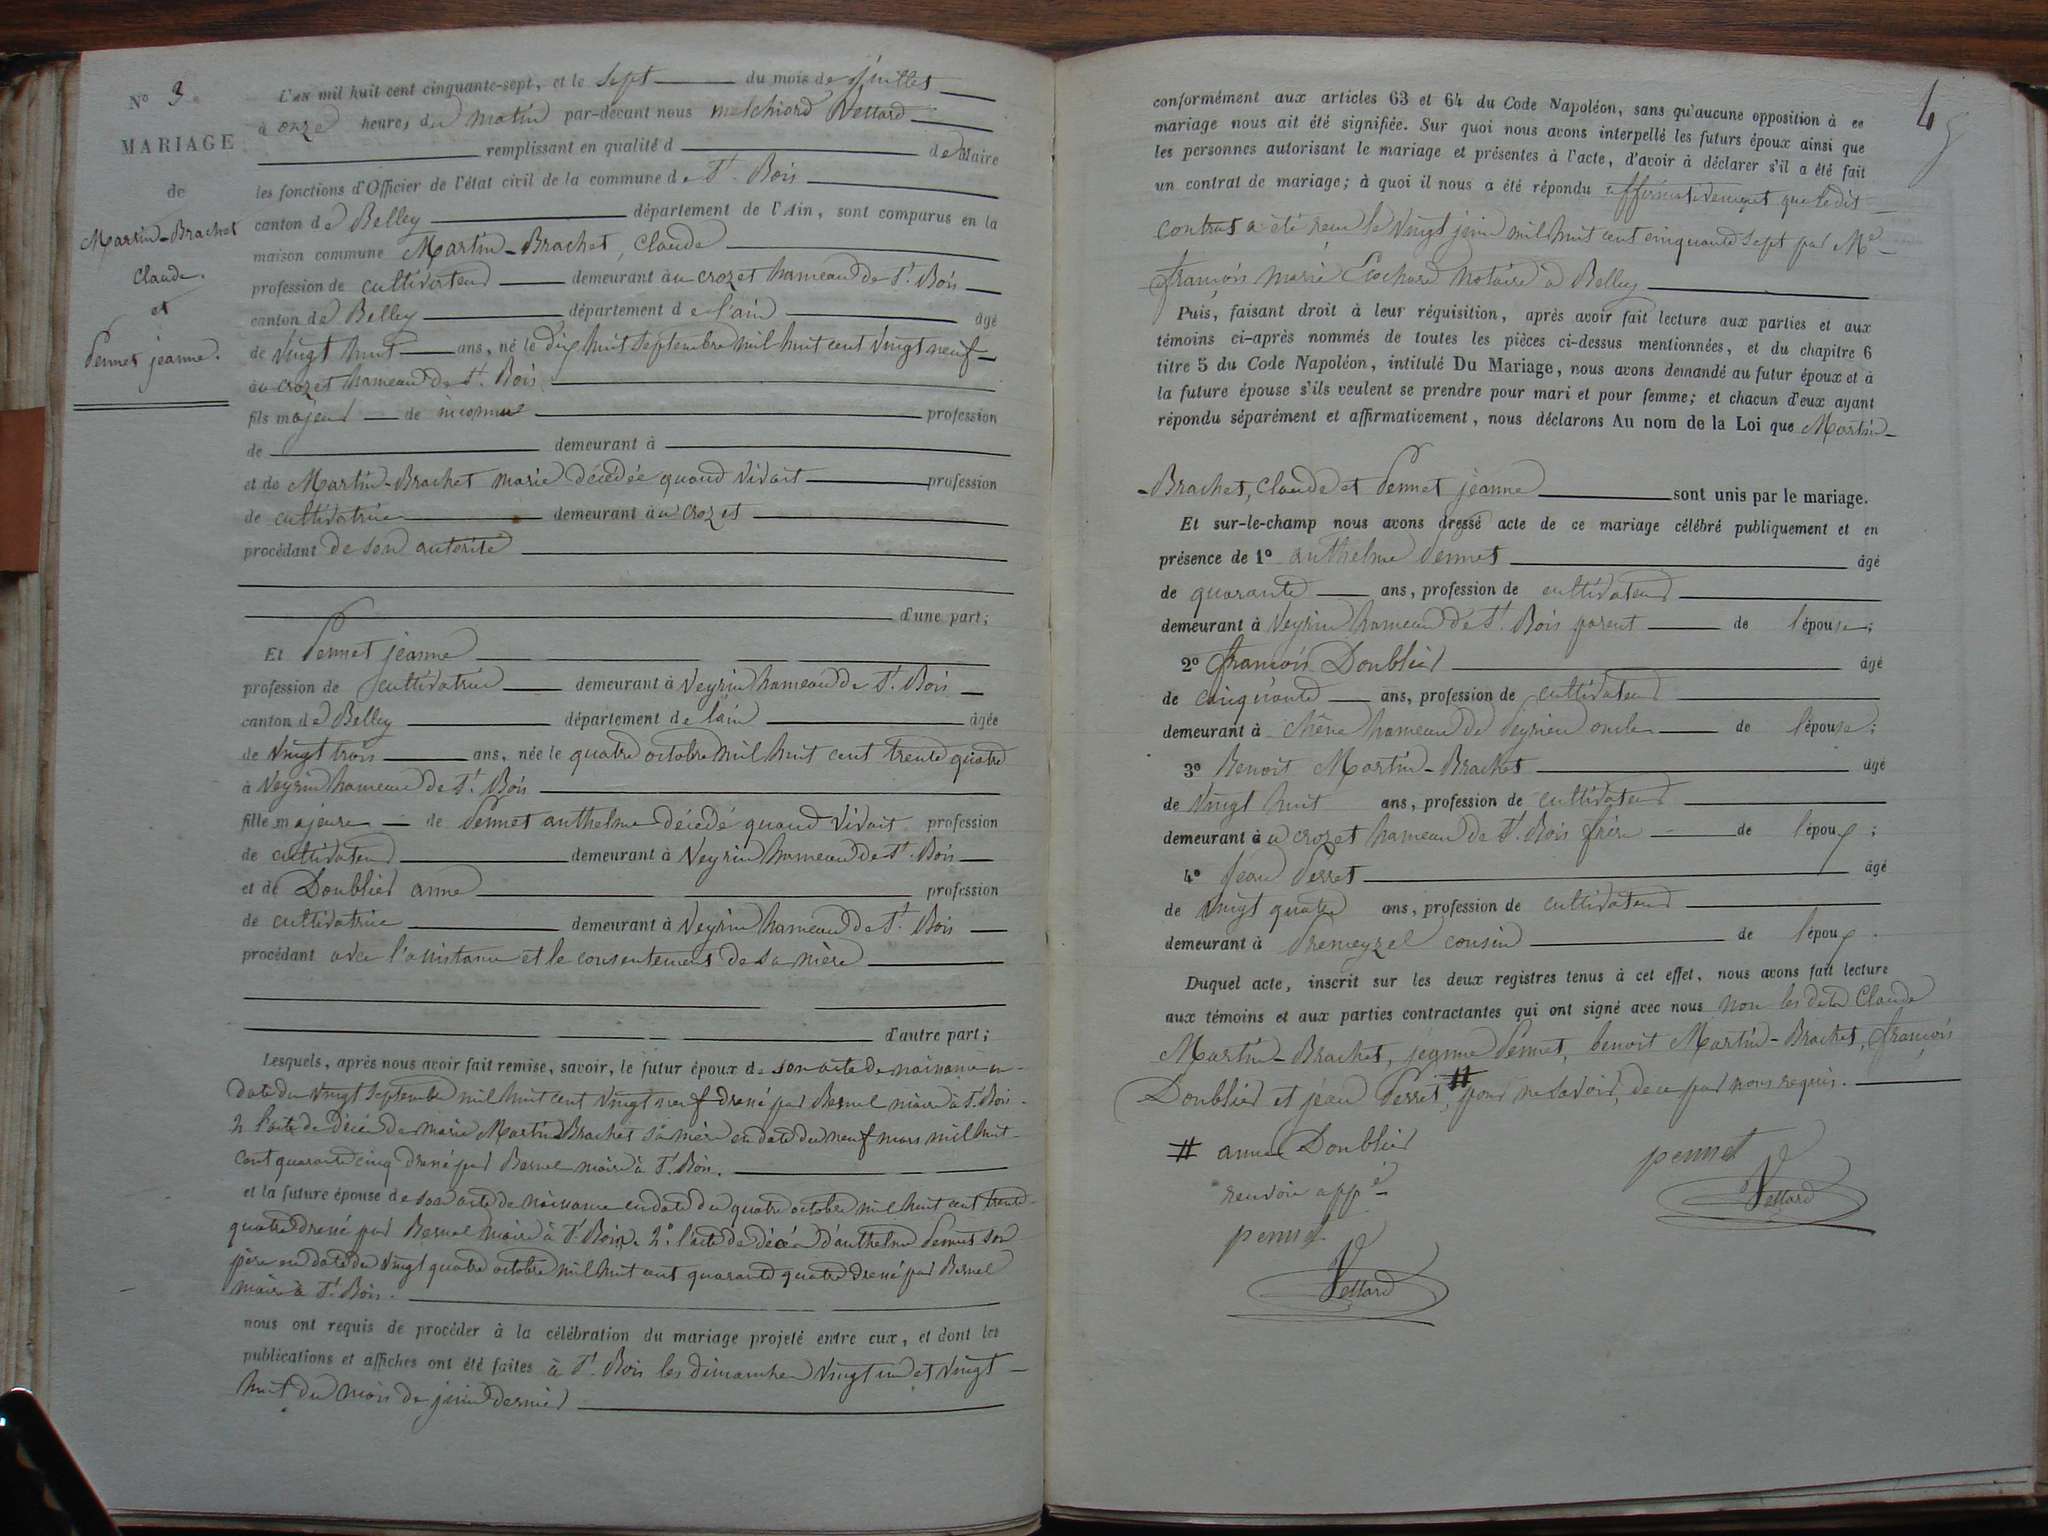 N° 3.
MARIAGE
de
Martin-Brachet
Claude.
et
Pennet jeanne.
L'an mil huit cent cinquante-sept, et le sept du mois de juillet
à onze heures du matin par-devant nous melchiord Vettard
remplissant en qualité d de Maire
les fonctions d'Officier de l'état civil de la commune de St. Bois
canton de Belley département de l'Ain, sont comparus en la
maison commune Martin-Brachet, Claude
profession de cultivateur demeurant au crozet hameau de St. Bois
canton de Belley département de l'ain âgé
de vingt huit ans, né le dix huit septembre mil huit cent vingt neuf
au crozet hameau de St. Bois
fils majeur de inconnu profession
de demeurant à
et de Martin-Brachet marie décédée quand vivait profession
de cultivatrice demeurant au crozet
procédant de son autorité
d'une part;
Et Pennet jeanne
profession de cultivatrice demeurant à Veyrin hameau de St. Bois
canton de Belley département de l'ain âgée
de vingt trois ans, née le quatre octobre mil huit cent trente quatre
à Veyrin hameau de St. Bois
fille majeure de Pennet anthelme décédé quand vivait profession
de cultivateur demeurant à Veyrin hameau de St. Bois
et de Doublier anne profession
de cultivatrice demeurant à Veyrin hameau de St. Bois
procédant avec l'assistance et le consentement de sa mère
d'autre part;
Lesquels, après nous avoir fait remise, savoir, le futur époux de son acte de naissance en
date du vingt septembre mil huit cent vingt neuf dressé par Bernel maire à St. Bois.
2 l'acte de décès de marie Martin Brachet sa mère en date du neuf mars mil huit
cent quarante cinq dressé par Bernel maire à St. Bois.
et la future épouse de son acte de naissance en date du quatre octobre mil huit cent trente
quatre dressé par Bernel maire à St. Bois. 2° l'acte de décès d'anthelme Pennet son
père en date du vingt quatre octobre mil huit cent quarante quatre dressé par Bernel
maire à St. Bois.
nous ont requis de procéder à la célébration du mariage projeté entre eux, et dont les
publications et affiches ont été faites à St. Bois les dimanches vingt un et vingt
huit du mois de juin dernier
4
conformément aux articles 63 et 64 du Code Napoléon, sans qu'aucune opposition à ce
mariage nous ait été signifiée. Sur quoi nous avons interpellé les futurs époux ainsi que
les personnes autorisant le mariage et présentes à l'acte, d'avoir à déclarer s'il a été fait
un contrat de mariage; à quoi il nous a été répondu affirmativement que le dit
contrat a été reçu le vingt juin mil huit cent cinquante sept par Me
françois marie notaire à Belley
Puis, faisant droit à leur réquisition, après avoir fait lecture aux parties et aux
témoins ci-après nommés de toutes les pièces ci-dessus mentionnées, et du chapitre 6
titre 5 du Code Napoléon, intitulé Du Mariage, nous avons demandé au futur époux et à
la future épouse s'ils veulent se prendre pour mari et pour femme; et chacun d'eux ayant
répondu séparément et affirmativement, nous déclarons Au nom de la Loi que Martin-
-Brachet, Claude et Pennet jeanne sont unis par le mariage.
Et sur-le-champ nous avons dressé acte de ce mariage célébré publiquement et en
présence de 1° anthelme Pennet âgé
de quarante ans, profession de cultivateur
demeurant à Veyrin hameau de St. Bois parent de l'épouse;
2° françois Doublier âgé
de cinquante ans, profession de cultivateur
demeurant à chêne hameau de Peyrieu oncle de l'épouse;
3° Benoit Martin-Brachet âgé
de vingt huit ans, profession de cultivateur
demeurant au crozet hameau de St. Bois frère de l'époux;
4° Jean Perret âgé
de vingt quatre ans, profession de cultivateur
demeurant à Premeyzel cousin de l'époux.
Duquel acte, inscrit sur les deux registres tenus à cet effet, nous avons fait lecture
aux témoins et aux parties contractantes qui ont signé avec nous non les dits Claude
Martin-Brachet, jeanne Pennet, benoit Martin-Brachet, françois
Doublier et jean Perret, # pour ne savoir, de ce par nous requis.
# anne Doublier
renvoi appé
pennet
Vettard
pennet
Vettard